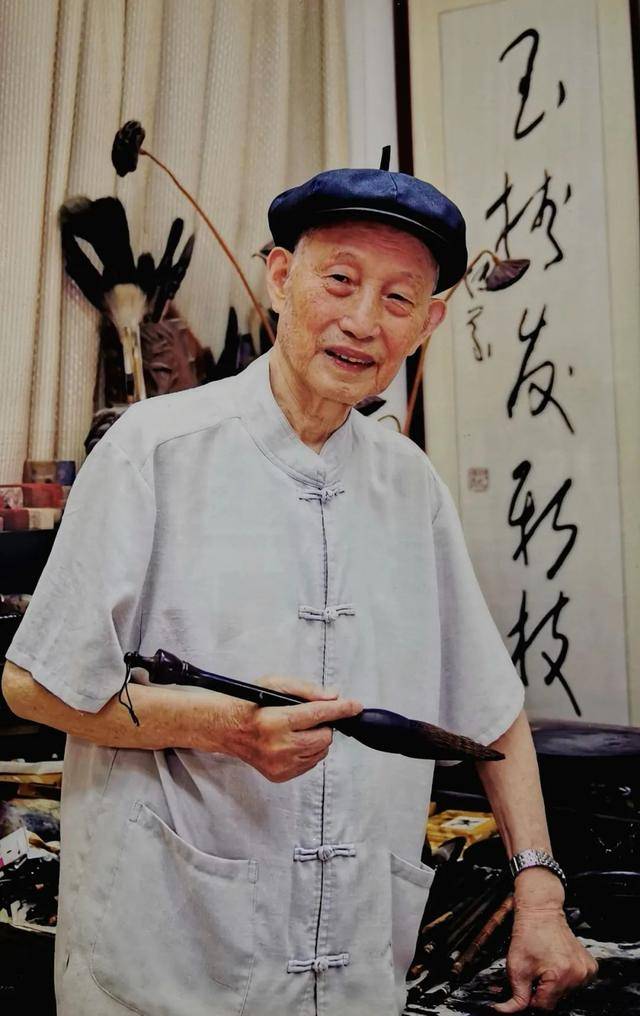 玉树发新枝